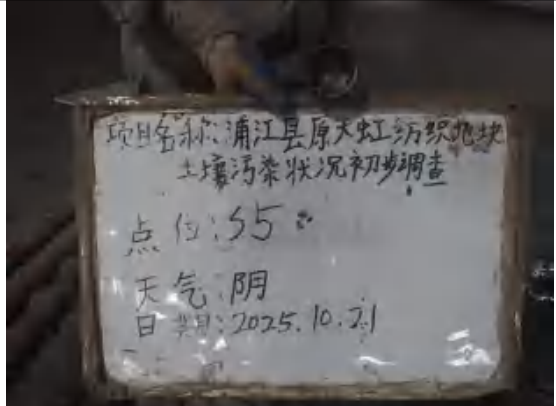 项目名称:浦江县原大虹纺织地块
土壤污染状况初步调查
点位:S5
天气:阴
日期:2025.10.21